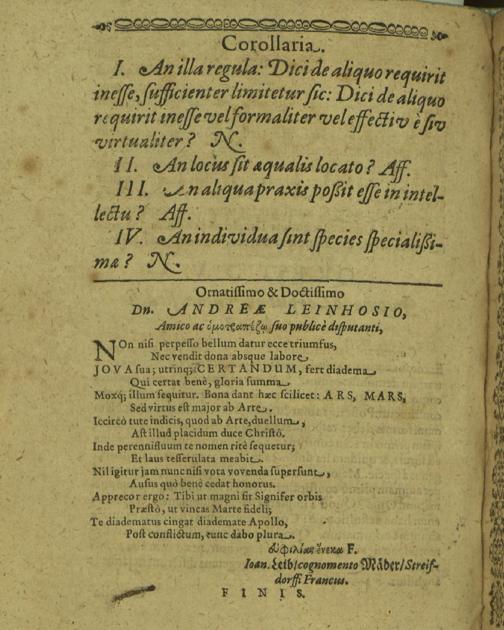 Corollaria.
I. An illa regula: Dici de aliquo requirit
inesse, sufficienter limitetur sic: Dici de aliquo
requirit inesse vel formaliter vel effectivè siv
virtualiter? N.
II. An locus sit æqualis locato? Aff.
III. An aliqua praxis poßit esse in intel-
lectu? Aff.
IV. An individua sint species specialißi-
mæ? N.
Ornatissimo & Doctissimo
Dn. ANDREÆ LEINHOSIO,
Amico ac ὁμοτραπέζῳ suo publicè disputanti,
NOn nisi perpesso bellum datur ecce triumfus,
Nec vendit dona absque labore
JOVA sua; utrinq; CERTANDUM, fert diadema
Qui certat benè, gloria summa
Moxq; illum sequitur. Bona dant hæc scilicet: ARS, MARS,
Sed virtus est major ab Arte.
Iccircò tute indicis, quod ab Arte, duellum,
Ast illud placidum duce Christô.
Inde perennisluum te nomen ritè sequetur;
Et laus tesserulata meabit.
Nil igitur jam nunc nisi vota vovenda supersunt,
Ausus quò benè cedat honorus.
Apprecor ergo: Tibi ut magni sit Signifer orbis
Præstò, ut vincas Marte fideli;
Te diadematus cingat diademate Apollo,
Post conflictum, tunc dabo plura.
φιλίας ἕνεκα F.
Ioan. Leib/cognomento Mäder/Streif-
dorff. Francus.
FINIS.